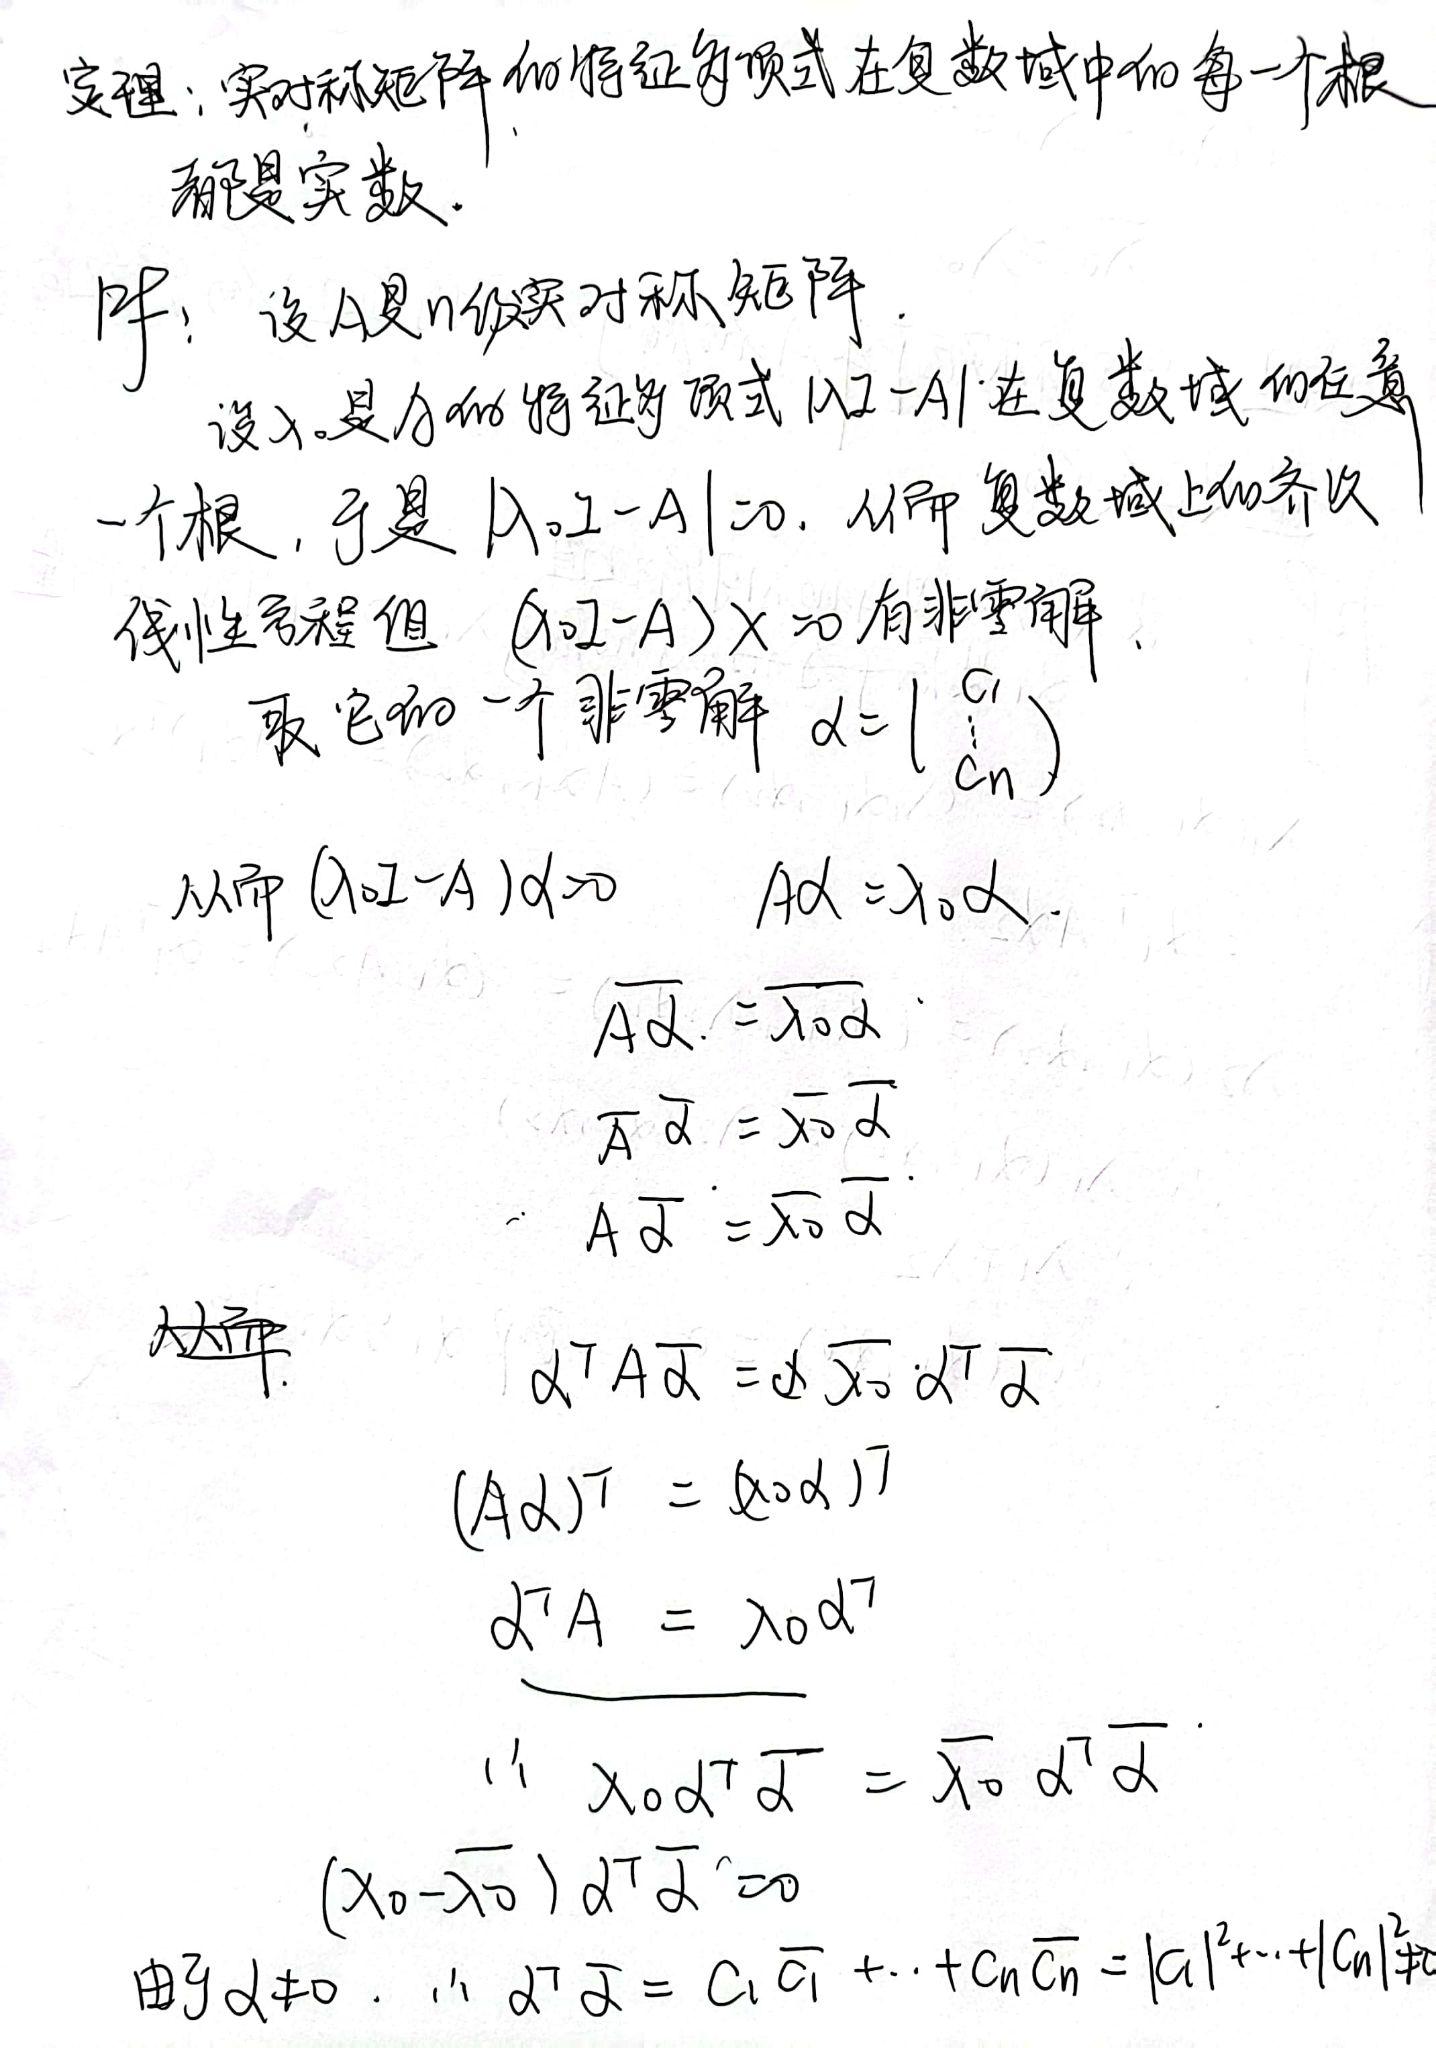 定理：实对称矩阵的特征多项式在复数域中的每一个根
都是实数.
pf: 设A是n级实对称矩阵.
设λ₀是A的特征多项式|λI-A|在复数域的任意
一个根, 于是 |λ₀I-A|=0. 从而复数域上的齐次
线性方程组 (λ₀I-A)X=0有非零解.
取它的一个非零解 α=(C₁ ⋮ Cn)
从而(λ₀I-A)α=0 Aα=λ₀α.
A̅α̅=λ̅₀α̅
A̅ α̅ = λ̅₀ α̅
A α̅ = λ̅₀ α̅
从而.
αᵀAα̅ = λ̅₀·αᵀα̅
(Aα)ᵀ = (λ₀α)ᵀ
αᵀA = λ₀αᵀ
∴ λ₀αᵀα̅ = λ̅₀ αᵀα̅
(λ₀-λ̅₀)αᵀα̅=0
由于α≠0. ∴ αᵀα̅ = C₁C̅₁+…+CnC̅n=|C₁|²+…+|Cn|²≠0